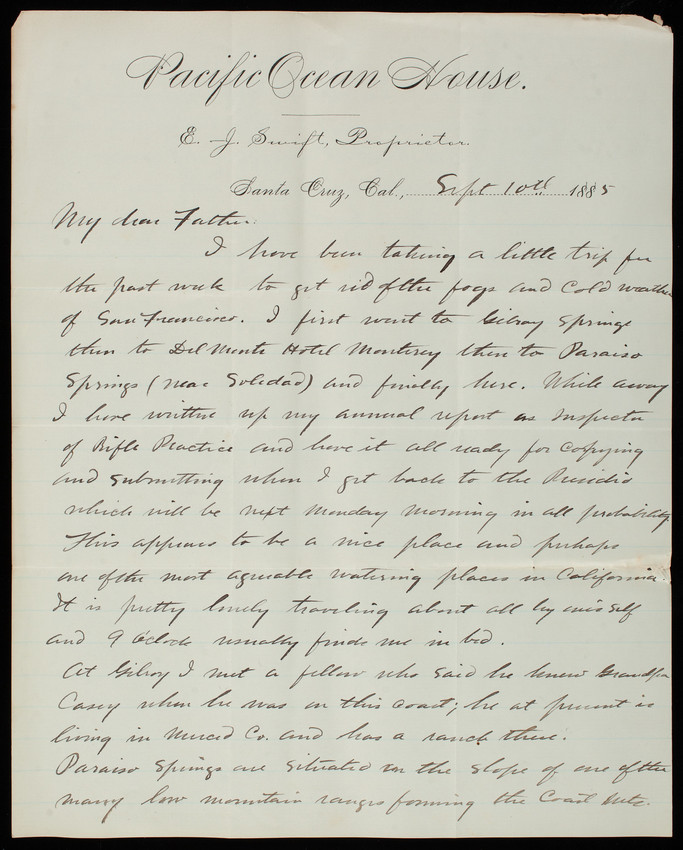 Pacific Ocean House.
E. J. Swift, Proprietor.
Santa Cruz, Cal., Sept 10th 1885
My dear Father.
I have been taking a little trip for
the past week to get rid of the fogs and cold weather
of San Francisco. I first went to Gilroy Springs
then to Del Monte Hotel Monterey then to Paraiso
Springs (near Soledad) and finally here. While away
I have written up my annual report as Inspector
of Rifle Practice and have it all ready for copying
and submitting when I get back to the Presidio
which will be next Monday morning in all probability
This appears to be a nice place and perhaps
one of the most agreeable watering places in California
It is pretty lonely traveling about all by one's self
and 9 o'clock usually finds me in bed.
At Gilroy I met a fellow who said he knew Grandpa
Casey when he was on this coast; he at present is
living in Merced Co. and has a ranch there.
Paraiso Springs are situated on the slope of one of the
many low mountain ranges forming the Coast Mts.